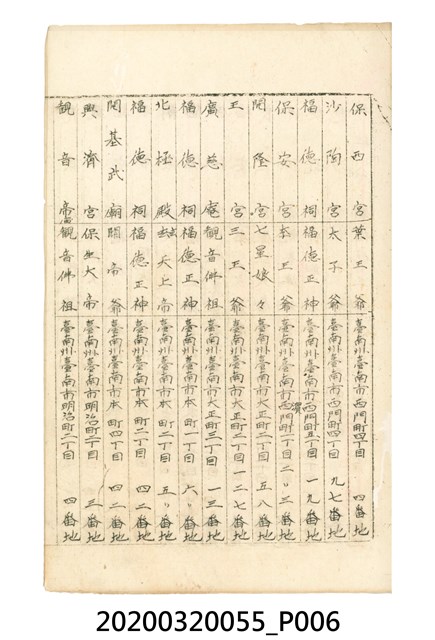 保西宮 葉王爺 臺南州臺南市西門町四丁目 四番地
沙陶宮 太子爺 臺南州臺南市西門町四丁目 九七番地
福德祠 福德正神 臺南州臺南市西門町五丁目 一九番地
保安宮 李王爺 臺南州臺南市西門町二丁目 二〃三番地
開隆宮 七星娘々 臺南州臺南市大正町二丁目 五八番地
王宮 三王爺 臺南州臺南市大正町二丁目 一二七番地
廣慈庵 觀音佛祖 臺南州臺南市大正町三丁目 一三番地
福德祠 福德正神 臺南州臺南市本町一丁目 六〃番地
北極殿 玄天上帝 臺南州臺南市本町二丁目 五〃番地
福德祠 福德正神 臺南州臺南市本町二丁目 四二番地
開基武廟 關帝爺 臺南州臺南市本町四丁目 四二番地
興濟宮 保生大帝 臺南州臺南市明治町二丁目 三番地
觀音 觀音佛祖 臺南州臺南市明治町二丁目 四番地
20200320055_P006